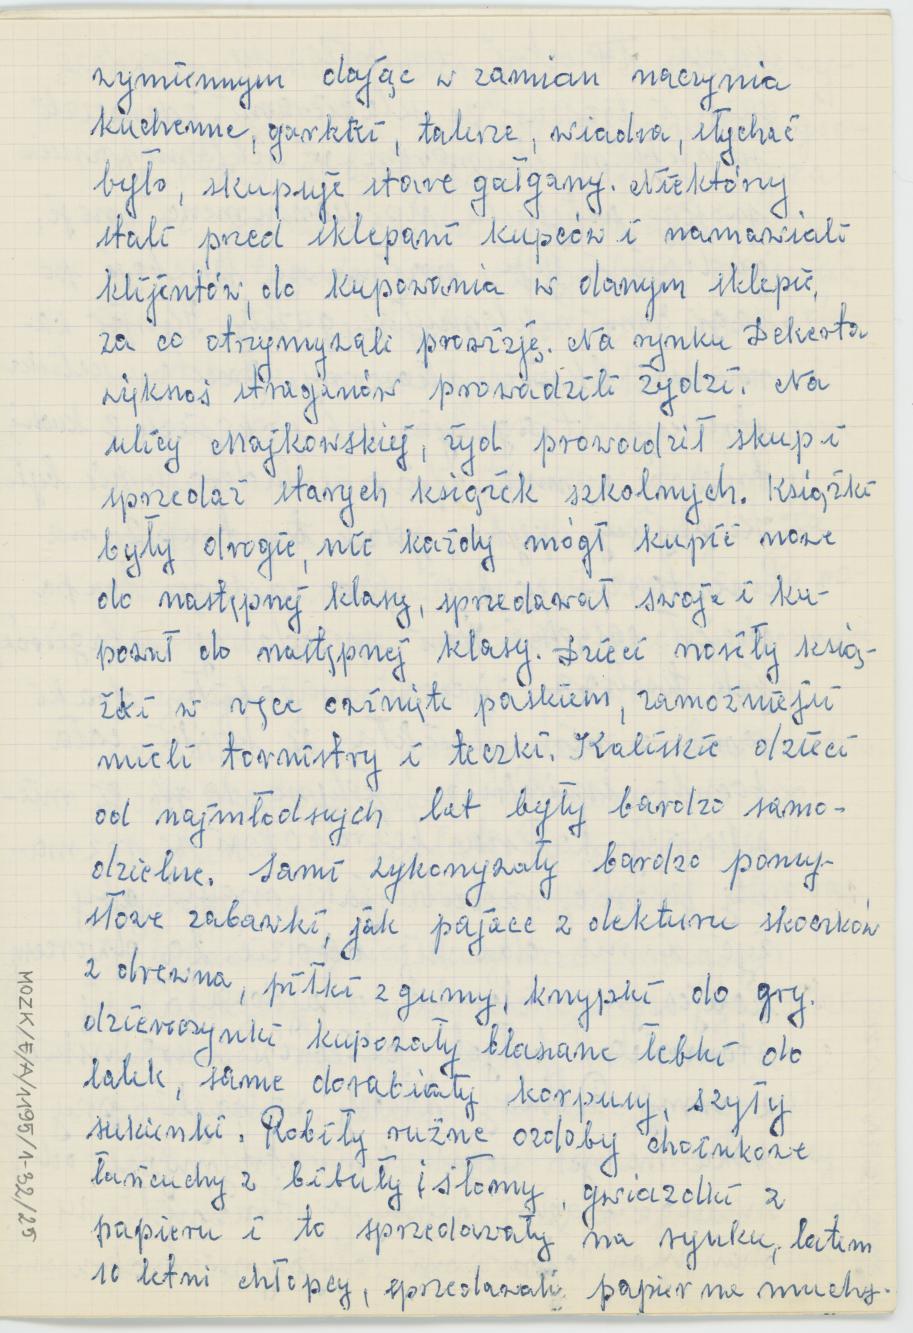 wymiennym dając w zamian naczynia
kuchenne, garkti, talerze, wiadra, słychać
było, skupuje stare gałgany. Niektóry
stali przed sklepani kupców i namawiali
klijentów, do kupowania w danym sklepie,
za co otrzymywali prowizję. Na rynku Dekerta
więknoś straganów prowadzili Żydzi. Na
ulicy Majkowskiej, żyd prowadził skup i
sprzedaż starych książek szkolnych. Książki
były drogie, nie każdy mógł kupić nowe
do następnej klasy, sprzedawał swoje i ku-
pował do następnej klasy. Dzieci nosiły ksią-
żki w ręce ożinięte paskiem, zamożniejsi
mieli tornistry i teczki. Kaliskie dzieci
od najmłodszych lat były bardzo samo-
dzielne. Sami wykonywały bardzo pomy-
słowe zabawki, jak pajace z dektury skoczków
z drewna, piłki z gumy, knypki do gry.
dziewczynki kupowały blaszane łebki do
lalek, same dorabiały korpusy, szyły
sukienki. Robiły rużne ozdoby choinkowe
łańcuchy z bibuły i słomy, gwiazdki z
papieru i to sprzedawały na rynku, latem
10 letni chłopcy, sprzedawali papier na muchy.
MOZK/E/A/1195/1-32/25